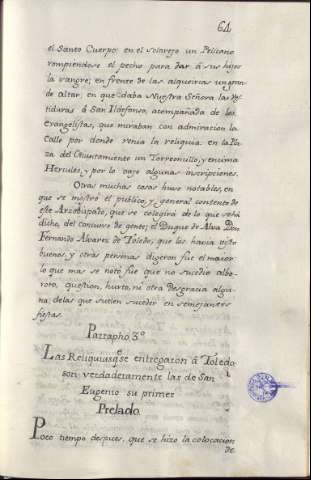 64
el Santo Cuerpo: en el solarejo un Pelicano
rompiendose el pecho para dar à sus hijos
la sangre; en frente de las alquerias un gran-
de altar, en que daba Nuestra Señora las ves-
tiduras à San Ildefonso, acompañada de los
evangelistas, que miraban con admiracion la
Calle por donde venia la reliquia: en la Pla-
za del Ayuntamiento un Torreonillo, y encima
Hercules, y por lo vajo algunas inscripciones.
Otras muchas cosas huvo notables, en
que se mostró el publico, y general contento de
este Arzobispado, que se colegirà de lo que está
dicho, del concurso de gente; el Duque de Alva Don
Fernando Alvarez de Toledo, que los havia visto
buenos, y otras personas digeron fue el maior
lo que mas se notó fue que no sucedio albo-
roto, question, hurto, ni otra desgracia algu-
na, de las que suelen suceder en semejantes
fiestas.
Parrapho 3º
Las Reliquias qe se entregaron à Toledo
son verdaderamente las de San
Eugenio su primer
Prelado.
Poco tiempo despues, que se hizo la colocacion
de